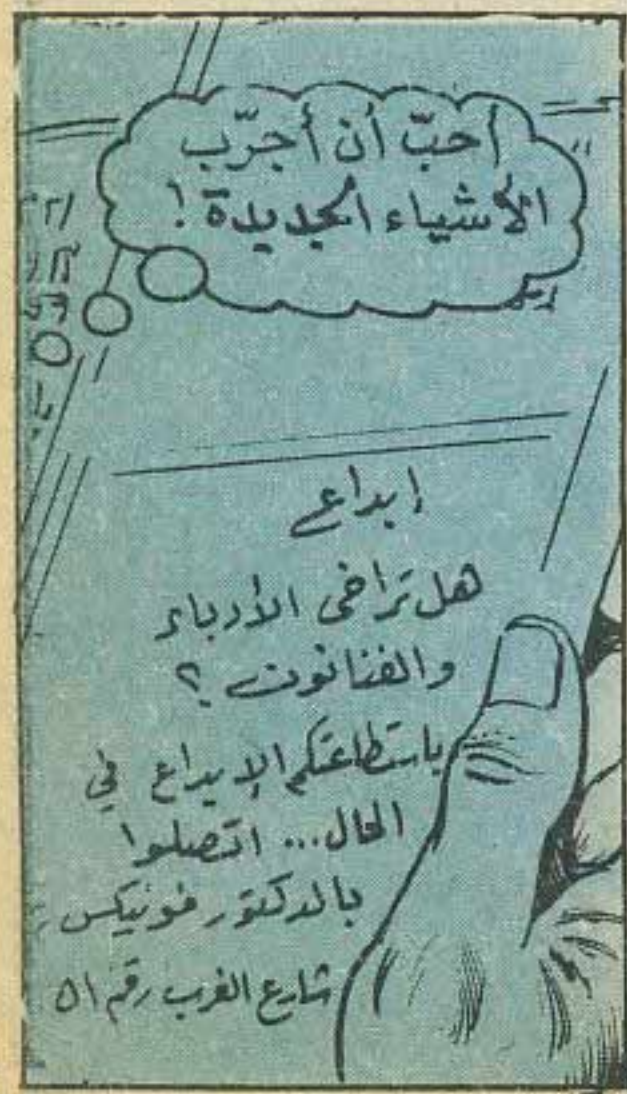 أحبّ أن أجرّب
الأشياء الجديدة!
إبداع
هل تراخى الأدباء
والفنانون؟
باستطاعتكم الإبداع في
الحال... اتصلوا
بالدكتور فونيكس
شارع الغرب رقم ٥١